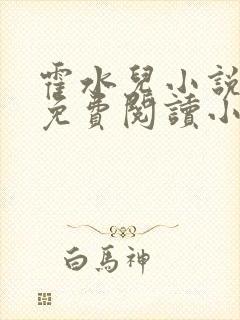 霍水兒小說
免費閱讀小
白馬神